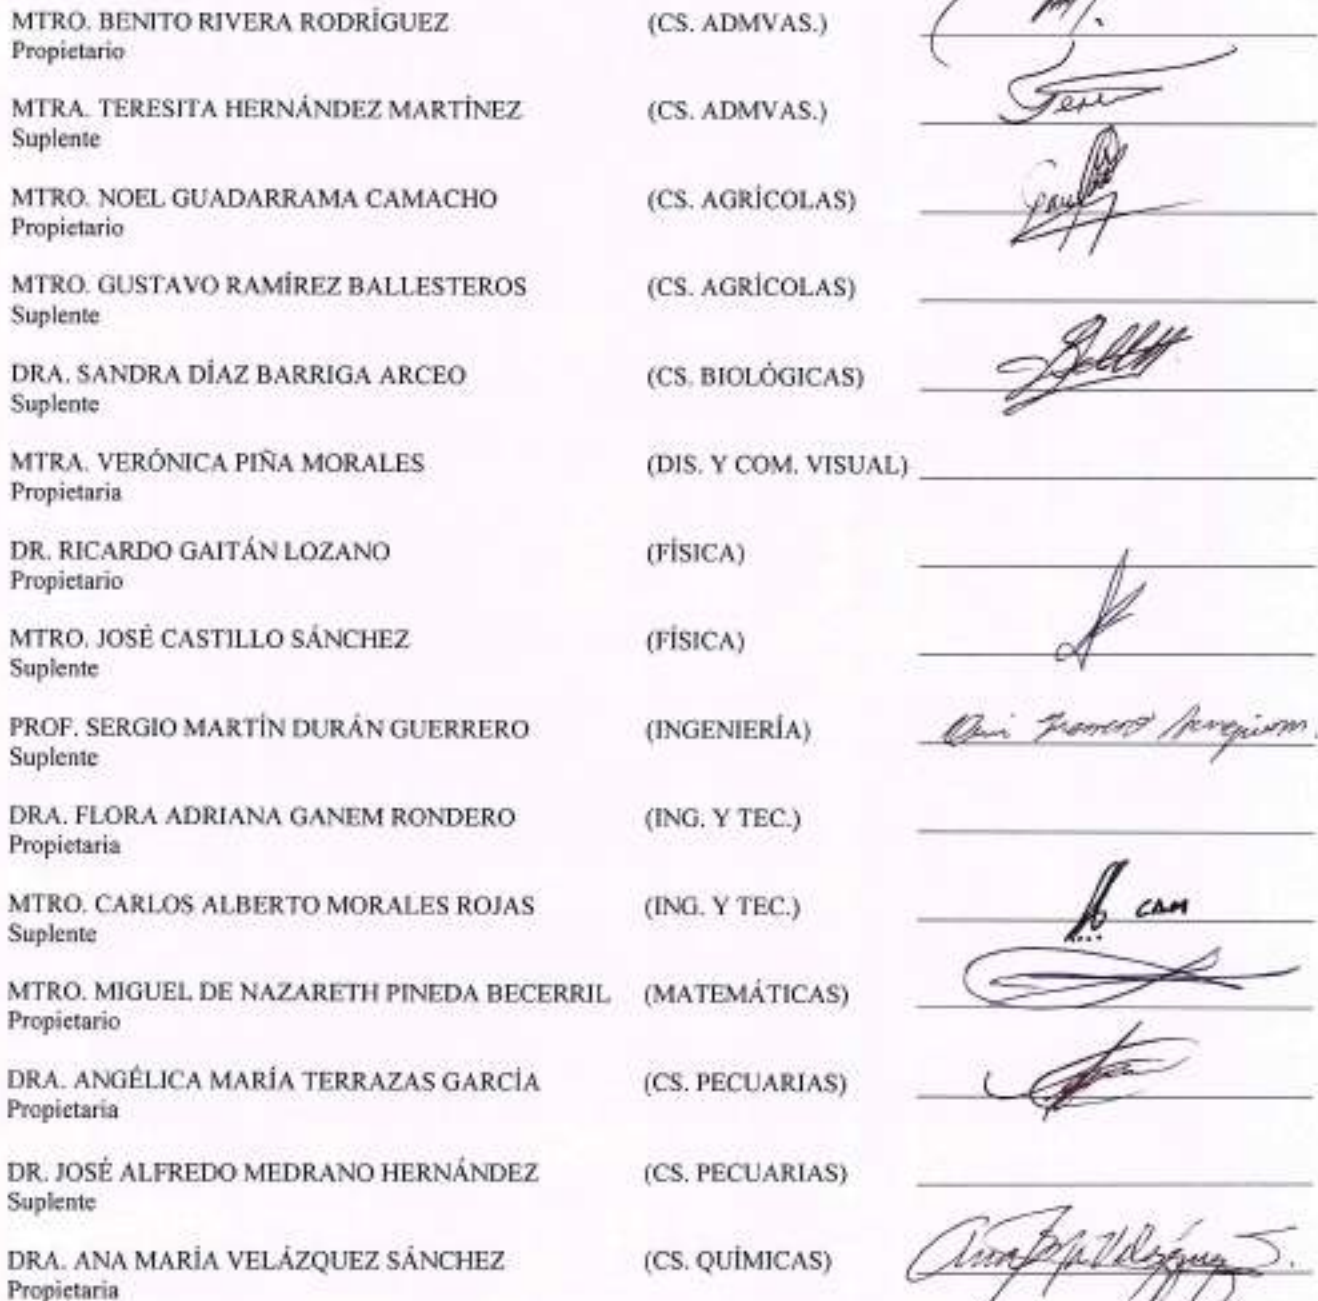 MTRO. BENITO RIVERA RODRÍGUEZ (CS. ADMVAS.)
Propietario
MTRA. TERESITA HERNÁNDEZ MARTÍNEZ (CS. ADMVAS.)
Suplente
MTRO. NOEL GUADARRAMA CAMACHO (CS. AGRÍCOLAS)
Propietario
MTRO. GUSTAVO RAMÍREZ BALLESTEROS (CS. AGRÍCOLAS)
Suplente
DRA. SANDRA DÍAZ BARRIGA ARCEO (CS. BIOLÓGICAS)
Suplente
MTRA. VERÓNICA PIÑA MORALES (DIS. Y COM. VISUAL)
Propietaria
DR. RICARDO GAITÁN LOZANO (FÍSICA)
Propietario
MTRO. JOSÉ CASTILLO SÁNCHEZ (FÍSICA)
Suplente
PROF. SERGIO MARTÍN DURÁN GUERRERO (INGENIERÍA)
Suplente
DRA. FLORA ADRIANA GANEM RONDERO (ING. Y TEC.)
Propietaria
MTRO. CARLOS ALBERTO MORALES ROJAS (ING. Y TEC.) CAM
Suplente
MTRO. MIGUEL DE NAZARETH PINEDA BECERRIL (MATEMÁTICAS)
Propietario
DRA. ANGÉLICA MARÍA TERRAZAS GARCÍA (CS. PECUARIAS)
Propietaria
DR. JOSÉ ALFREDO MEDRANO HERNÁNDEZ (CS. PECUARIAS)
Suplente
DRA. ANA MARÍA VELÁZQUEZ SÁNCHEZ (CS. QUÍMICAS)
Propietaria